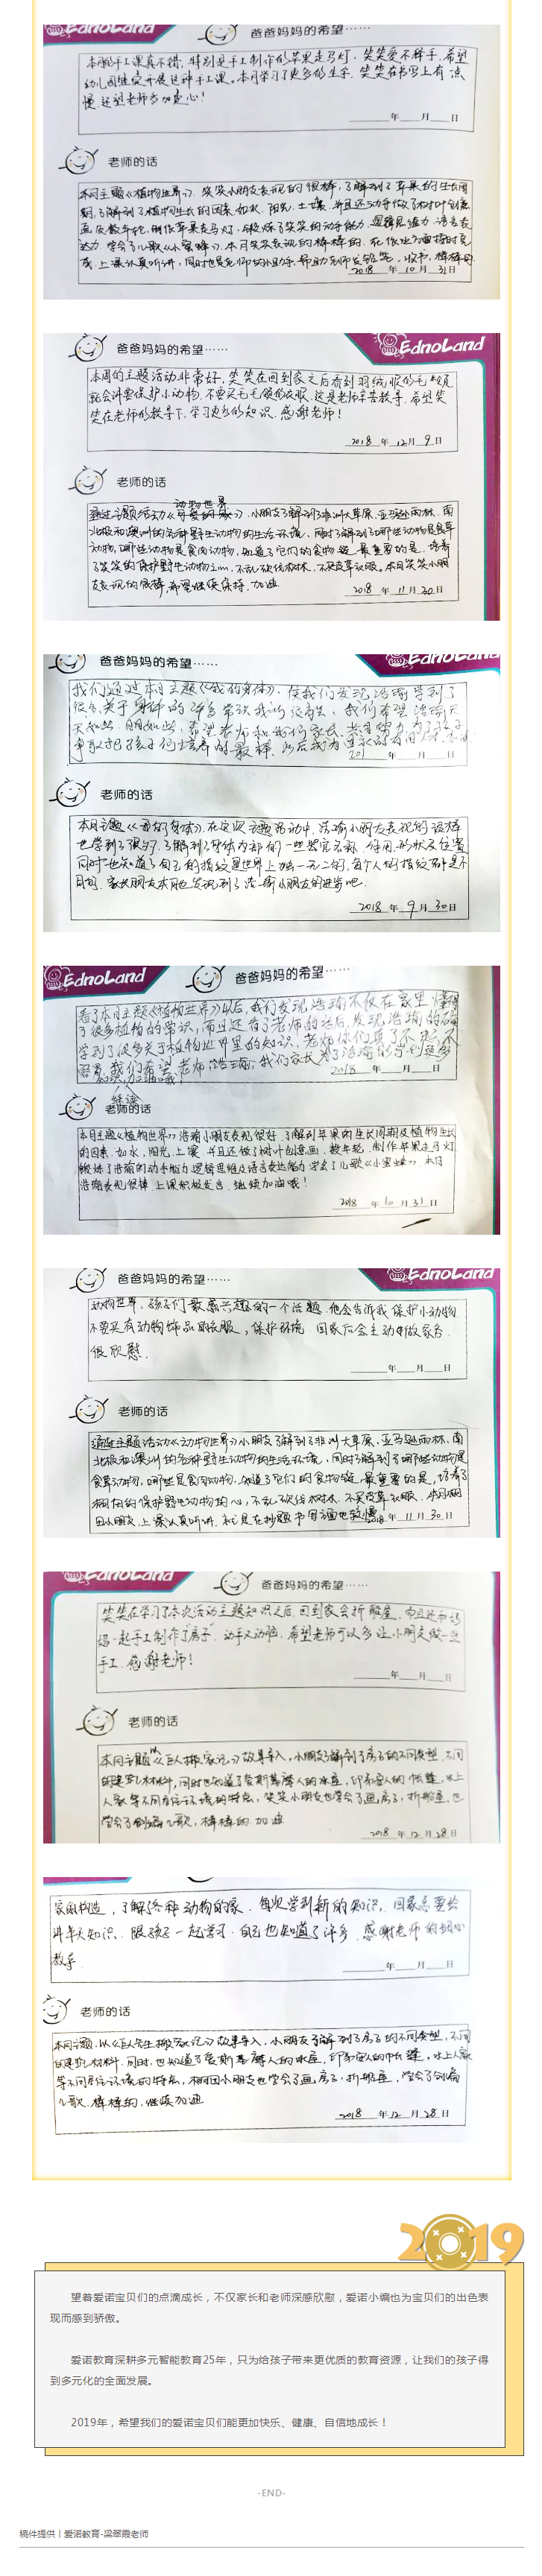 EdnoLand
爸爸妈妈的希望……
本月的手工课真不错，特别是手工制作的苹果走马灯，笑笑爱不释手，希望
幼儿园继续开展这种手工课。本月学习了更多的生字，笑笑在书写上有一点
慢，还望老师多加走心！
年 月 日
老师的话
本月主题《植物世界》，笑笑小朋友表现的很棒，了解到了苹果的生长周
期，了解到了植物生长的因素，如水，阳光，土壤，并且还动手做了树叶创意
画及数年轮，制作苹果走马灯，锻炼了笑笑的动手能力，逻辑思维力，语言表
达力，学会了儿歌《小蜜蜂》，本月笑笑表现的棒棒的，
上课认真听讲，同时也是老师的小助手，帮助老师发铅笔，收书，棒棒的
2018 年 10 月 31 日
爸爸妈妈的希望……
EdnoLand
本周的主题活动非常好，笑笑在回到家之后看到羽绒服的毛毛领
就会讲要保护小动物，不要买毛毛领的衣服，这是老师辛苦教导，希望笑
笑在老师的教导下，学习更多的知识，感谢老师！
2018 年 12 月 9 日
老师的话
动物世界
通过主题活动《可爱的家》，小朋友了解到了非洲大草原，亚马逊雨林，南
北极和澳洲的各种野生动物的生活环境，同时了解到了哪些动物是食草
动物，哪些动物是食肉动物，知道了它们的食物链，最重要的是，培养
了笑笑的保护野生动物之心，不乱砍伐树木，不买皮草衣服。本月笑笑小朋
友表现的很棒，希望继续保持，加油
2018 年 11 月 30 日
爸爸妈妈的希望……
我们通过本月主题《我的身体》，使我们发现浩瑜学到了
很多关于身体的许多常识，我们很高兴，我们希望浩瑜天
天如此，
争取把了孩子们培养的最棒，
201 年 月 日
老师的话
本月主题《我的身体》，在这次主题活动中，浩瑜小朋友表现的很棒
也学到了很多，了解到了身体内部的一些器官名称，作用，形状及位置
同时也知道了自己的指纹是世界上独一无二的，每个人的指纹都是不
同的，家长朋友本月也发现到了浩瑜小朋友的进步吧。
2018 年 9 月 30 日
EdnoLand
爸爸妈妈的希望……
看了本月主题《植物世界》以后，我们发现浩瑜不仅在家里懂得
了很多植物的常识，而且还看了老师的话后，发现浩瑜的确
学到了很多关于植物世界里的知识，老师你们真了不起，
2018 年 月 日
继续
老师的话
本月主题《植物世界》浩瑜小朋友表现很好，了解到苹果的生长周期及植物生长
的因素，如水，阳光，土壤，并且还做了树叶创意画，数年轮，制作苹果走马灯
锻炼了浩瑜的动手能力逻辑思维及语言表达能力，学会了儿歌《小蜜蜂》，本月
浩瑜表现很棒，上课积极发言，继续加油哦！
2018 年 10 月 31 日
爸爸妈妈的希望……
EdnoLand
动物世界，孩子们最感兴趣的一个话题，他会告诉我保护小动物
不要买有动物饰品的衣服，保护环境，回家后会主动的做家务
很欣慰。
年 月 日
老师的话
通过主题活动《动物世界》小朋友了解到了非洲大草原，亚马逊雨林，南
北极和澳洲的各种野生动物的生活环境，同时了解到了哪些动物是
食草动物，哪些是食肉动物，知道了它们的食物链，最重要的是，培养了
桐田的保护野生动物的心，不乱砍伐树木，不买皮草衣服，本月桐
田小朋友，上课认真听讲，就是在抄题书写方面也较慢
2018 年 11 月 30 日
EdnoLand
爸爸妈妈的希望……
笑笑在学习了本次活动主题知识之后，回到家会折船屋，而且还和妈
妈一起手工制作了"房子"，动手又动脑，希望老师可以多让小朋友做一些
手工，感谢老师！
年 月 日
老师的话
本月主题以《巨人搬家记》故事导入，小朋友了解到了房子的不同类型，不同
的建筑材料，同时也知道了爱斯基摩人的冰屋，印第安人的帐篷，水上
人家等不同居住环境的特点，笑笑小朋友也学会了画房子，折船屋，也
学会了创编儿歌，棒棒的，加油
2018 年 12 月 28 日
家的构造，了解各种动物的家，每次学到新的知识，回家总要给
讲半天知识，跟孩子一起学习，自己也知道了许多，感谢老师的细心
教导。
年 月 日
老师的话
本月主题，以《巨人先生搬家记》故事导入，小朋友了解到了房子的不同类型，不同
的建筑材料，同时，也知道了爱斯基摩人的冰屋，印第安人的帐篷，水上人家
等不同居住环境的特点，桐田小朋友也学会了画房子，折船屋，学会了创编
儿歌，棒棒的，继续加油
2018 年 12 月 28 日
2019
望着爱诺宝贝们的点滴成长，不仅家长和老师深感欣慰，爱诺小编也为宝贝们的出色表
现而感到骄傲。
爱诺教育深耕多元智能教育25年，只为给孩子带来更优质的教育资源，让我们的孩子得
到多元化的全面发展。
2019年，希望我们的爱诺宝贝们能更加快乐、健康、自信地成长！
-END-
稿件提供丨爱诺教育-梁翠霞老师